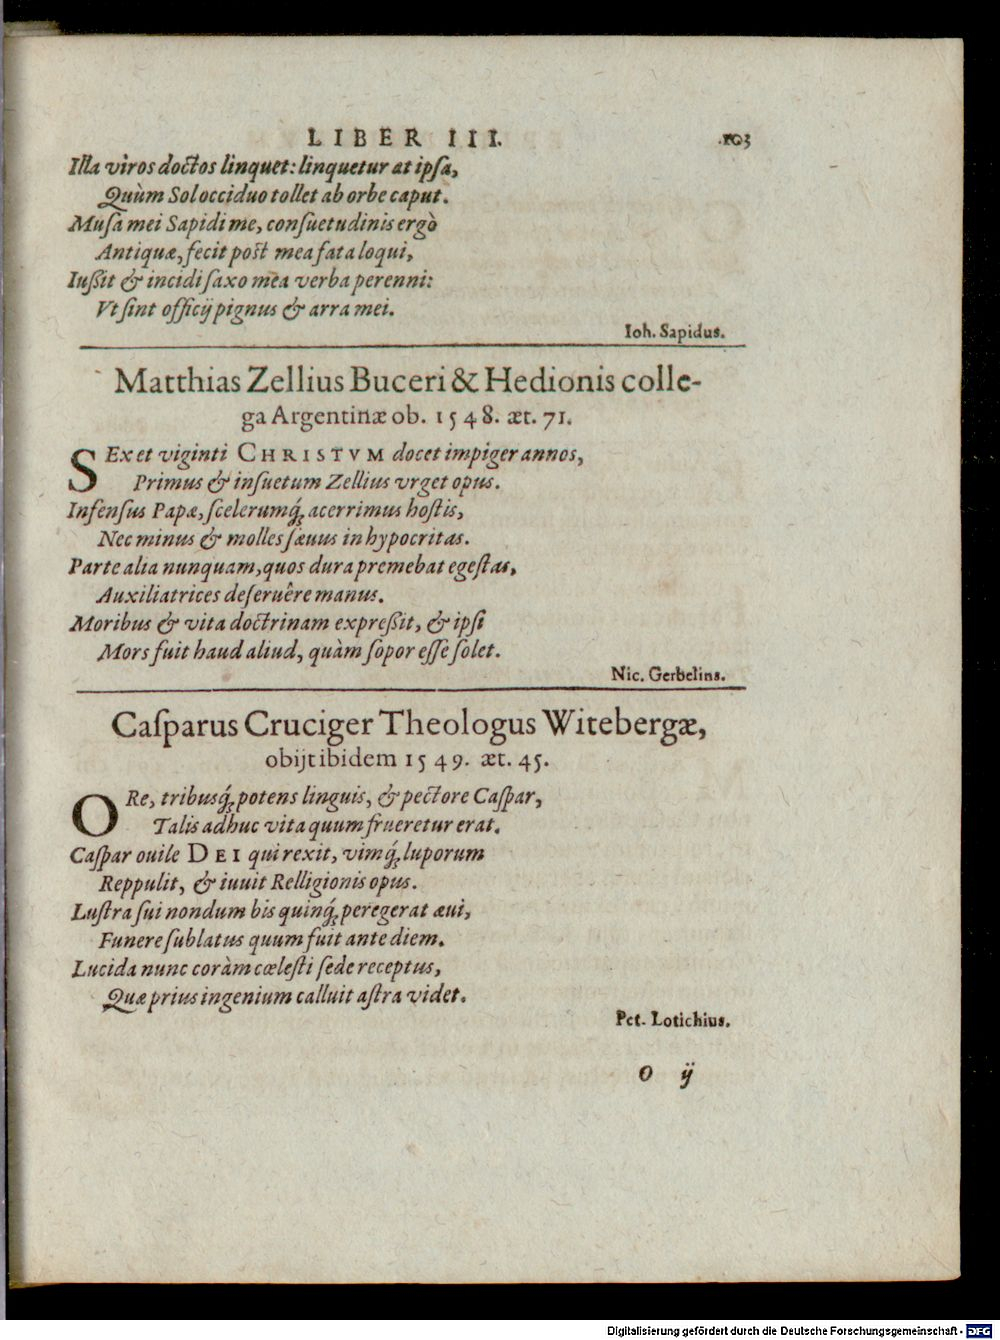 LIBER III. 103
Illa viros doctos linquet: linquetur at ipſa,
Quùm Sol occiduo tollet ab orbe caput.
Muſa mei Sapidi me, conſuetudinis ergò
Antiquæ, fecit poſt mea fata loqui,
Iußit & incidi ſaxo mea verba perenni:
Vt ſint officij pignus & arra mei.
Ioh. Sapidus.
Matthias Zellius Buceri & Hedionis colle-
ga Argentinæ ob. 1548. æt. 71.
SEx et viginti CHRISTVM docet impiger annos,
Primus & inſuetum Zellius vrget opus.
Infenſus Papæ, ſcelerumq́; acerrimus hoſtis,
Nec minus & molles ſæuus in hypocritas.
Parte alia nunquam, quos dura premebat egeſtas,
Auxiliatrices deſeruêre manus.
Moribus & vita doctrinam expreßit, & ipſi
Mors fuit haud aliud, quàm ſopor eſſe ſolet.
Nic. Gerbelius.
Caſparus Cruciger Theologus Witebergæ,
obijt ibidem 1549. æt. 45.
ORe, tribusq́; potens linguis, & pectore Caſpar,
Talis adhuc vita quum frueretur erat.
Caſpar ouile DEI qui rexit, vimq́; luporum
Reppulit, & iuuit Relligionis opus.
Luſtra ſui nondum bis quinq́; peregerat æui,
Funere ſublatus quum fuit ante diem.
Lucida nunc coràm cœleſti ſede receptus,
Quæ prius ingenium calluit aſtra videt.
Pet. Lotichius.
O ij
Digitalisierung gefördert durch die Deutsche Forschungsgemeinschaft - DFG